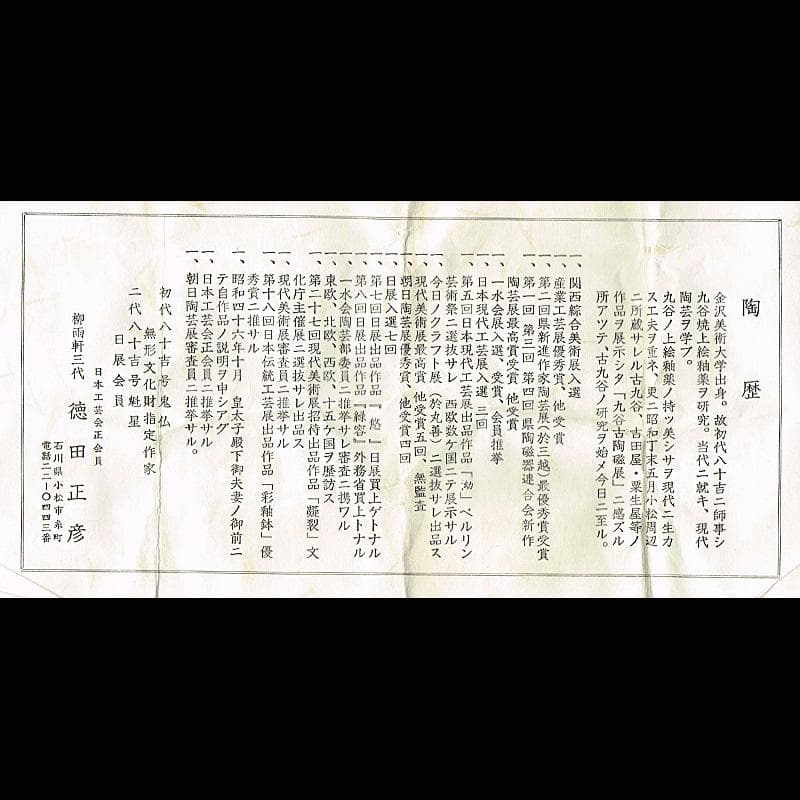 陶歴
金沢美術大学出身。故初代八十吉ニ師事シ
九谷焼上絵釉薬ヲ研究。当代ニ就キ、現代
陶芸ヲ学ブ。
九谷ノ上絵釉薬ノ持ツ美シサヲ現代ニ生カ
ス工夫ヲ重ネ、更ニ昭和丁未五月小松周辺
ニ所蔵サレル古九谷、吉田屋・粟生屋等ノ
作品ヲ展示シタ「九谷古陶磁展」ニ感ズル
所アツテ、古九谷ノ研究ヲ始メ今日ニ至ル。
一、関西綜合美術展入選
一、産業工芸展優秀賞、他受賞
一、第二回県新進作家陶芸展(於三越)最優秀賞受賞
一、第一回 第三回 第四回 県陶磁器連合会新作
陶芸展最高賞受賞 他受賞
一、一水会展入選、受賞、会員推挙
一、日本現代工芸展入選 三回
一、第五回日本現代工芸展出品作品「泑」ベルリン
芸術祭ニ選抜サレ 西欧数ケ国ニテ展示サル
一、今日ノクラフト展(於丸善)ニ選抜サレ出品ス
一、現代美術展最高賞 他受賞五回、無監査
一、朝日陶芸展優秀賞、他受賞四回
一、日展入選七回
一、第七回日展出品作品『悠』日展買上ゲトナル
一、第八回日展出品作品『緑容』外務省買上トナル
一、一水会陶芸部委員ニ推挙サレ審査ニ携ワル
一、東欧、北欧、西欧、十五ケ国ヲ歴訪ス
一、第二十七回現代美術展招待出品作品「凝裂」文
化庁主催展ニ選抜サレ出品ス
一、現代美術展審査員ニ推挙サル
一、第十八回日本伝統工芸展出品作品「彩釉鉢」優
秀賞ニ推サル
一、昭和四十六年十月 皇太子殿下御夫妻ノ御前ニ
テ自作品ノ説明ヲ申シアグ
一、日本工芸会正会員ニ推挙サル
一、朝日陶芸展審査員ニ推挙サル。
初代八十吉号鬼仏
無形文化財指定作家
二代八十吉号魁星
日展会員
日本工芸会正会員
柳雨軒三代 徳田正彦
石川県小松市糸町
電話二二-〇四四三番